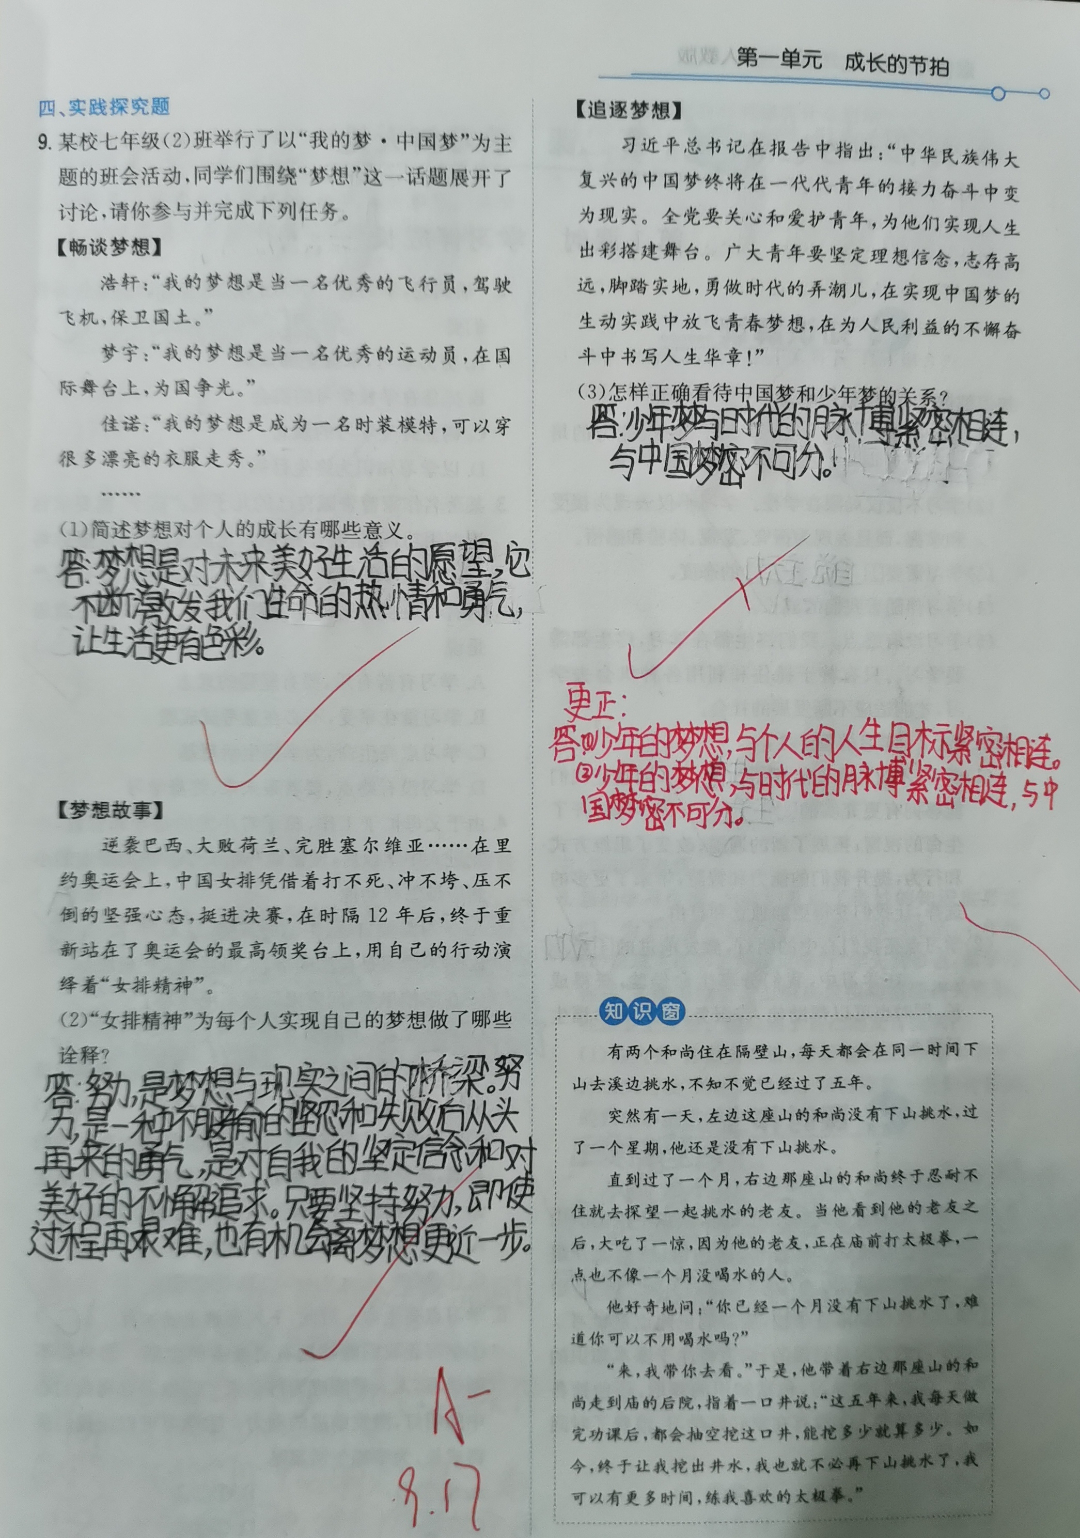 第一单元 成长的节拍
四、实践探究题
9. 某校七年级(2)班举行了以“我的梦·中国梦”为主
题的班会活动,同学们围绕“梦想”这一话题展开了
讨论,请你参与并完成下列任务。
【畅谈梦想】
浩轩:“我的梦想是当一名优秀的飞行员,驾驶
飞机,保卫国土。”
梦宇:“我的梦想是当一名优秀的运动员,在国
际舞台上,为国争光。”
佳诺:“我的梦想是成为一名时装模特,可以穿
很多漂亮的衣服走秀。”
……
(1)简述梦想对个人的成长有哪些意义。
答:梦想是对未来美好生活的愿望,它
不断激发我们生命的热情和勇气,
让生活更有色彩。
【梦想故事】
逆袭巴西、大败荷兰、完胜塞尔维亚……在里
约奥运会上,中国女排凭借着打不死、冲不垮、压不
倒的坚强心态,挺进决赛,在时隔 12 年后,终于重
新站在了奥运会的最高领奖台上,用自己的行动演
绎着“女排精神”。
(2)“女排精神”为每个人实现自己的梦想做了哪些
诠释?
答:努力,是梦想与现实之间的桥梁。努
力,是一种不服输的坚忍和失败后从头
再来的勇气,是对自我的坚定信念和对
美好的不懈追求。只要坚持努力,即使
过程再艰难,也有机会离梦想更近一步。
A-
9.17
【追逐梦想】
习近平总书记在报告中指出:“中华民族伟大
复兴的中国梦终将在一代代青年的接力奋斗中变
为现实。全党要关心和爱护青年,为他们实现人生
出彩搭建舞台。广大青年要坚定理想信念,志存高
远,脚踏实地,勇做时代的弄潮儿,在实现中国梦的
生动实践中放飞青春梦想,在为人民利益的不懈奋
斗中书写人生华章!”
(3)怎样正确看待中国梦和少年梦的关系?
答:少年梦与时代的脉博紧密相连,
与中国梦密不可分。
更正:
答:①少年的梦想,与个人的人生目标紧密相连。
②少年的梦想,与时代的脉博紧密相连,与中
国梦密不可分。
知识窗
有两个和尚住在隔壁山,每天都会在同一时间下
山去溪边挑水,不知不觉已经过了五年。
突然有一天,左边这座山的和尚没有下山挑水,过
了一个星期,他还是没有下山挑水。
直到过了一个月,右边那座山的和尚终于忍耐不
住就去探望一起挑水的老友。当他看到他的老友之
后,大吃了一惊,因为他的老友,正在庙前打太极拳,一
点也不像一个月没喝水的人。
他好奇地问:“你已经一个月没有下山挑水了,难
道你可以不用喝水吗?”
“来,我带你去看。”于是,他带着右边那座山的和
尚走到庙的后院,指着一口井说:“这五年来,我每天做
完功课后,都会抽空挖这口井,能挖多少就算多少。如
今,终于让我挖出井水,我也就不必再下山挑水了,我
可以有更多时间,练我喜欢的太极拳。”